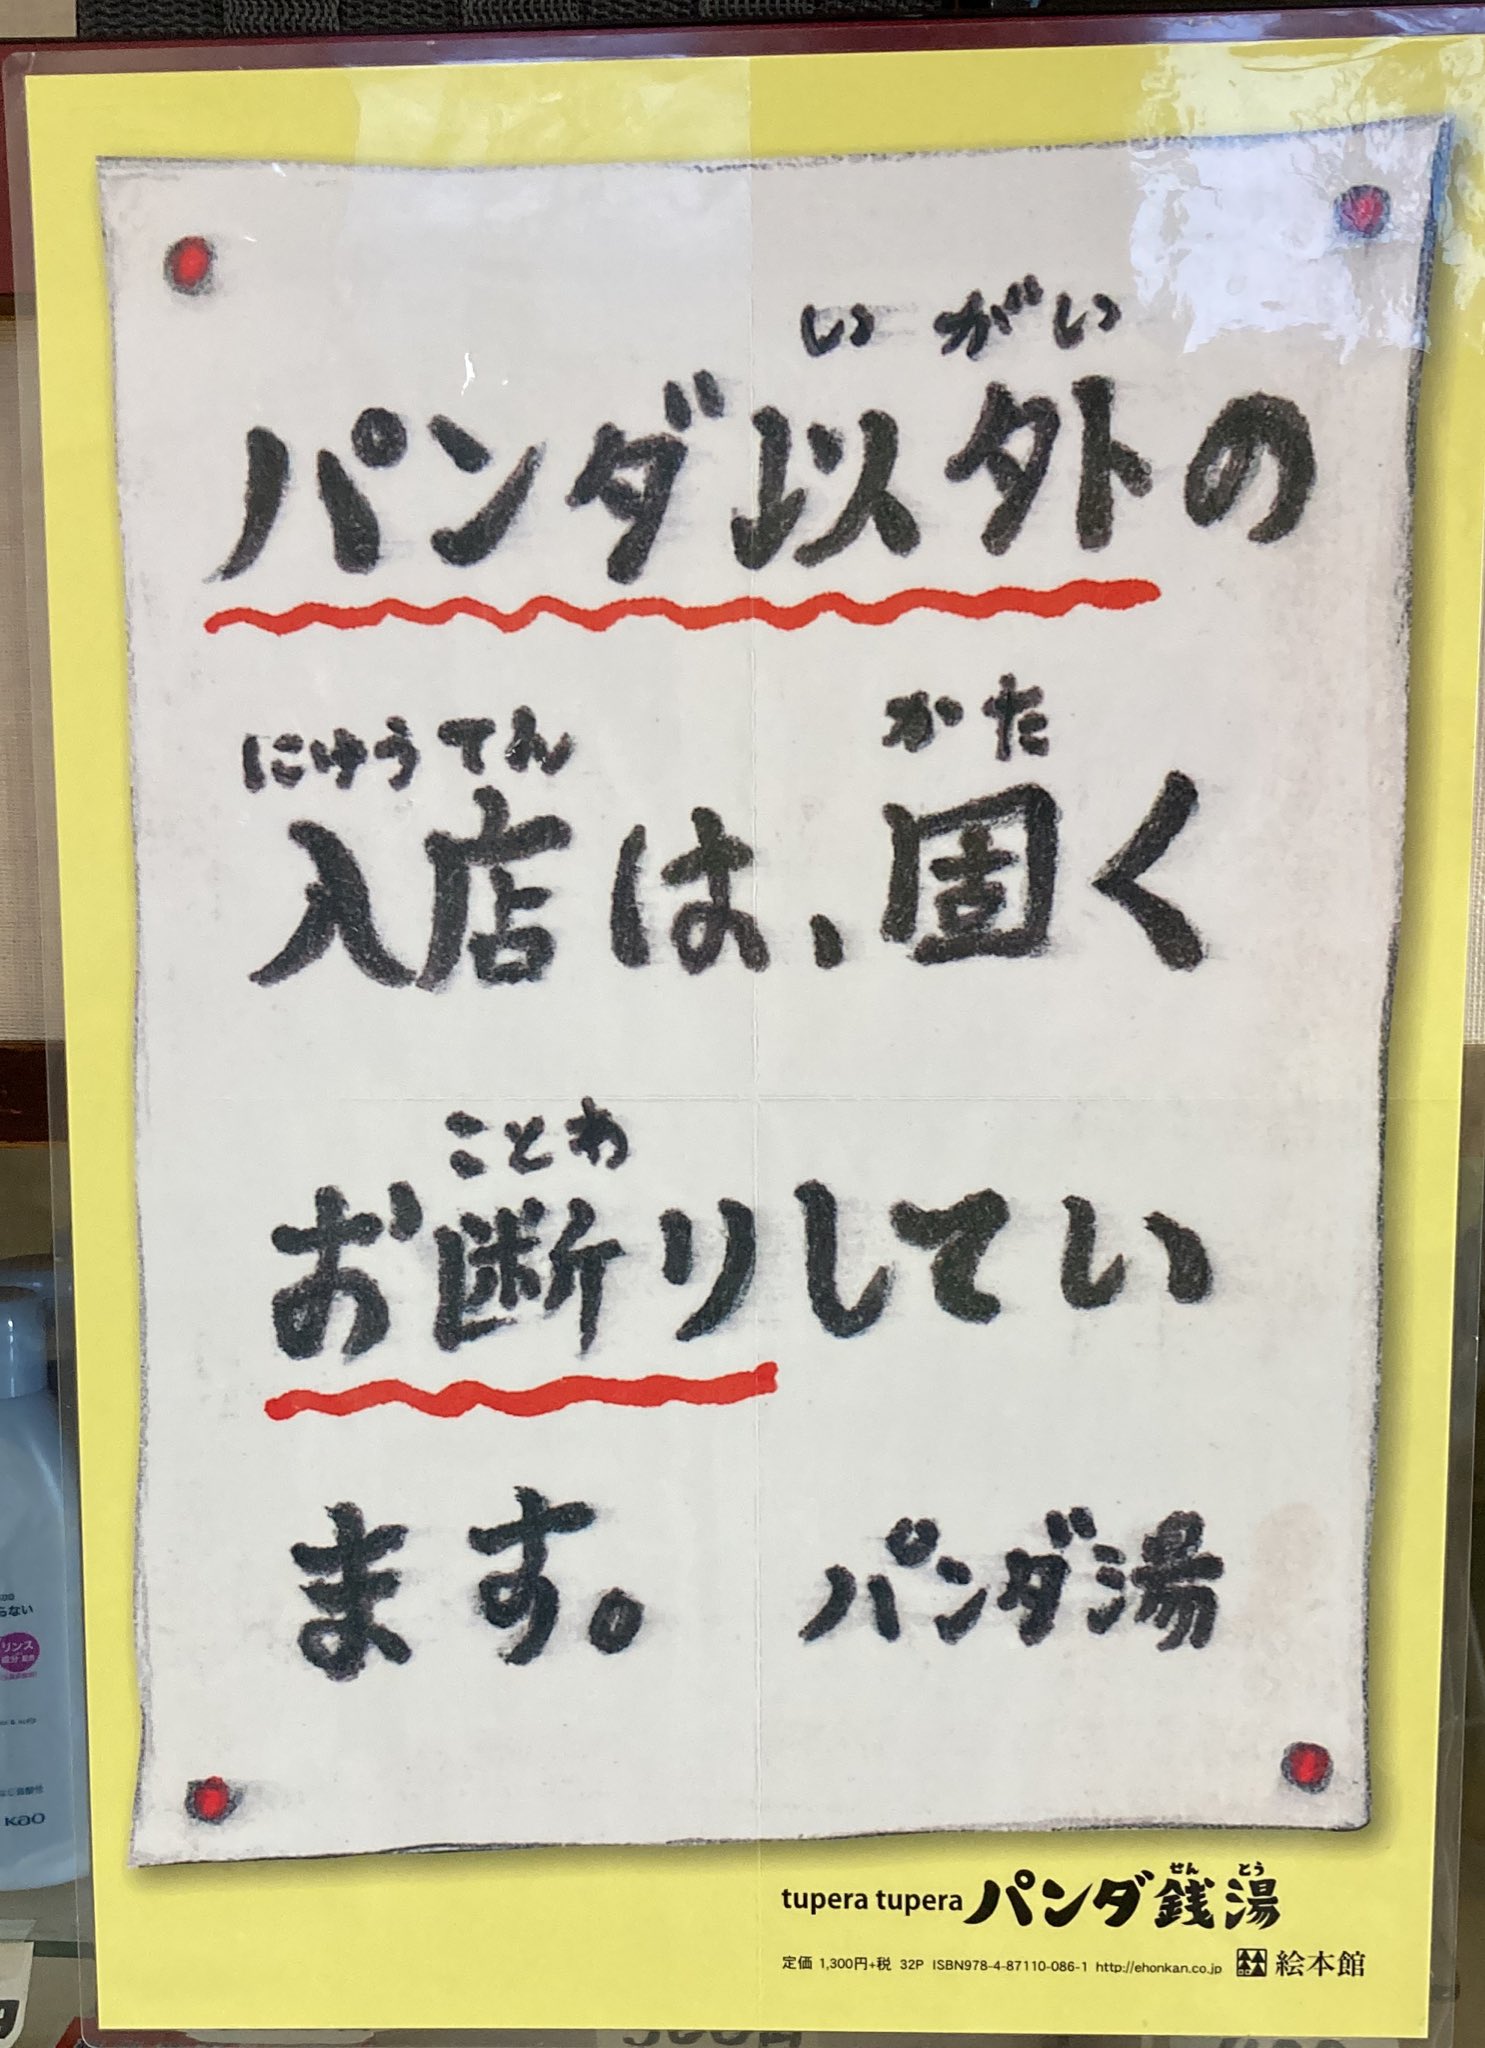 いがい
パンダ以外の
にゅうてん かた
入店は、固く
ことわ
お断りしてい
ます。 パンダ湯
せん とう
tupera tupera パンダ銭湯
定価 1,300円+税 32P ISBN978-4-87110-086-1 http://ehonkan.co.jp 絵本館
らない
リンス
成分 配合
Kao